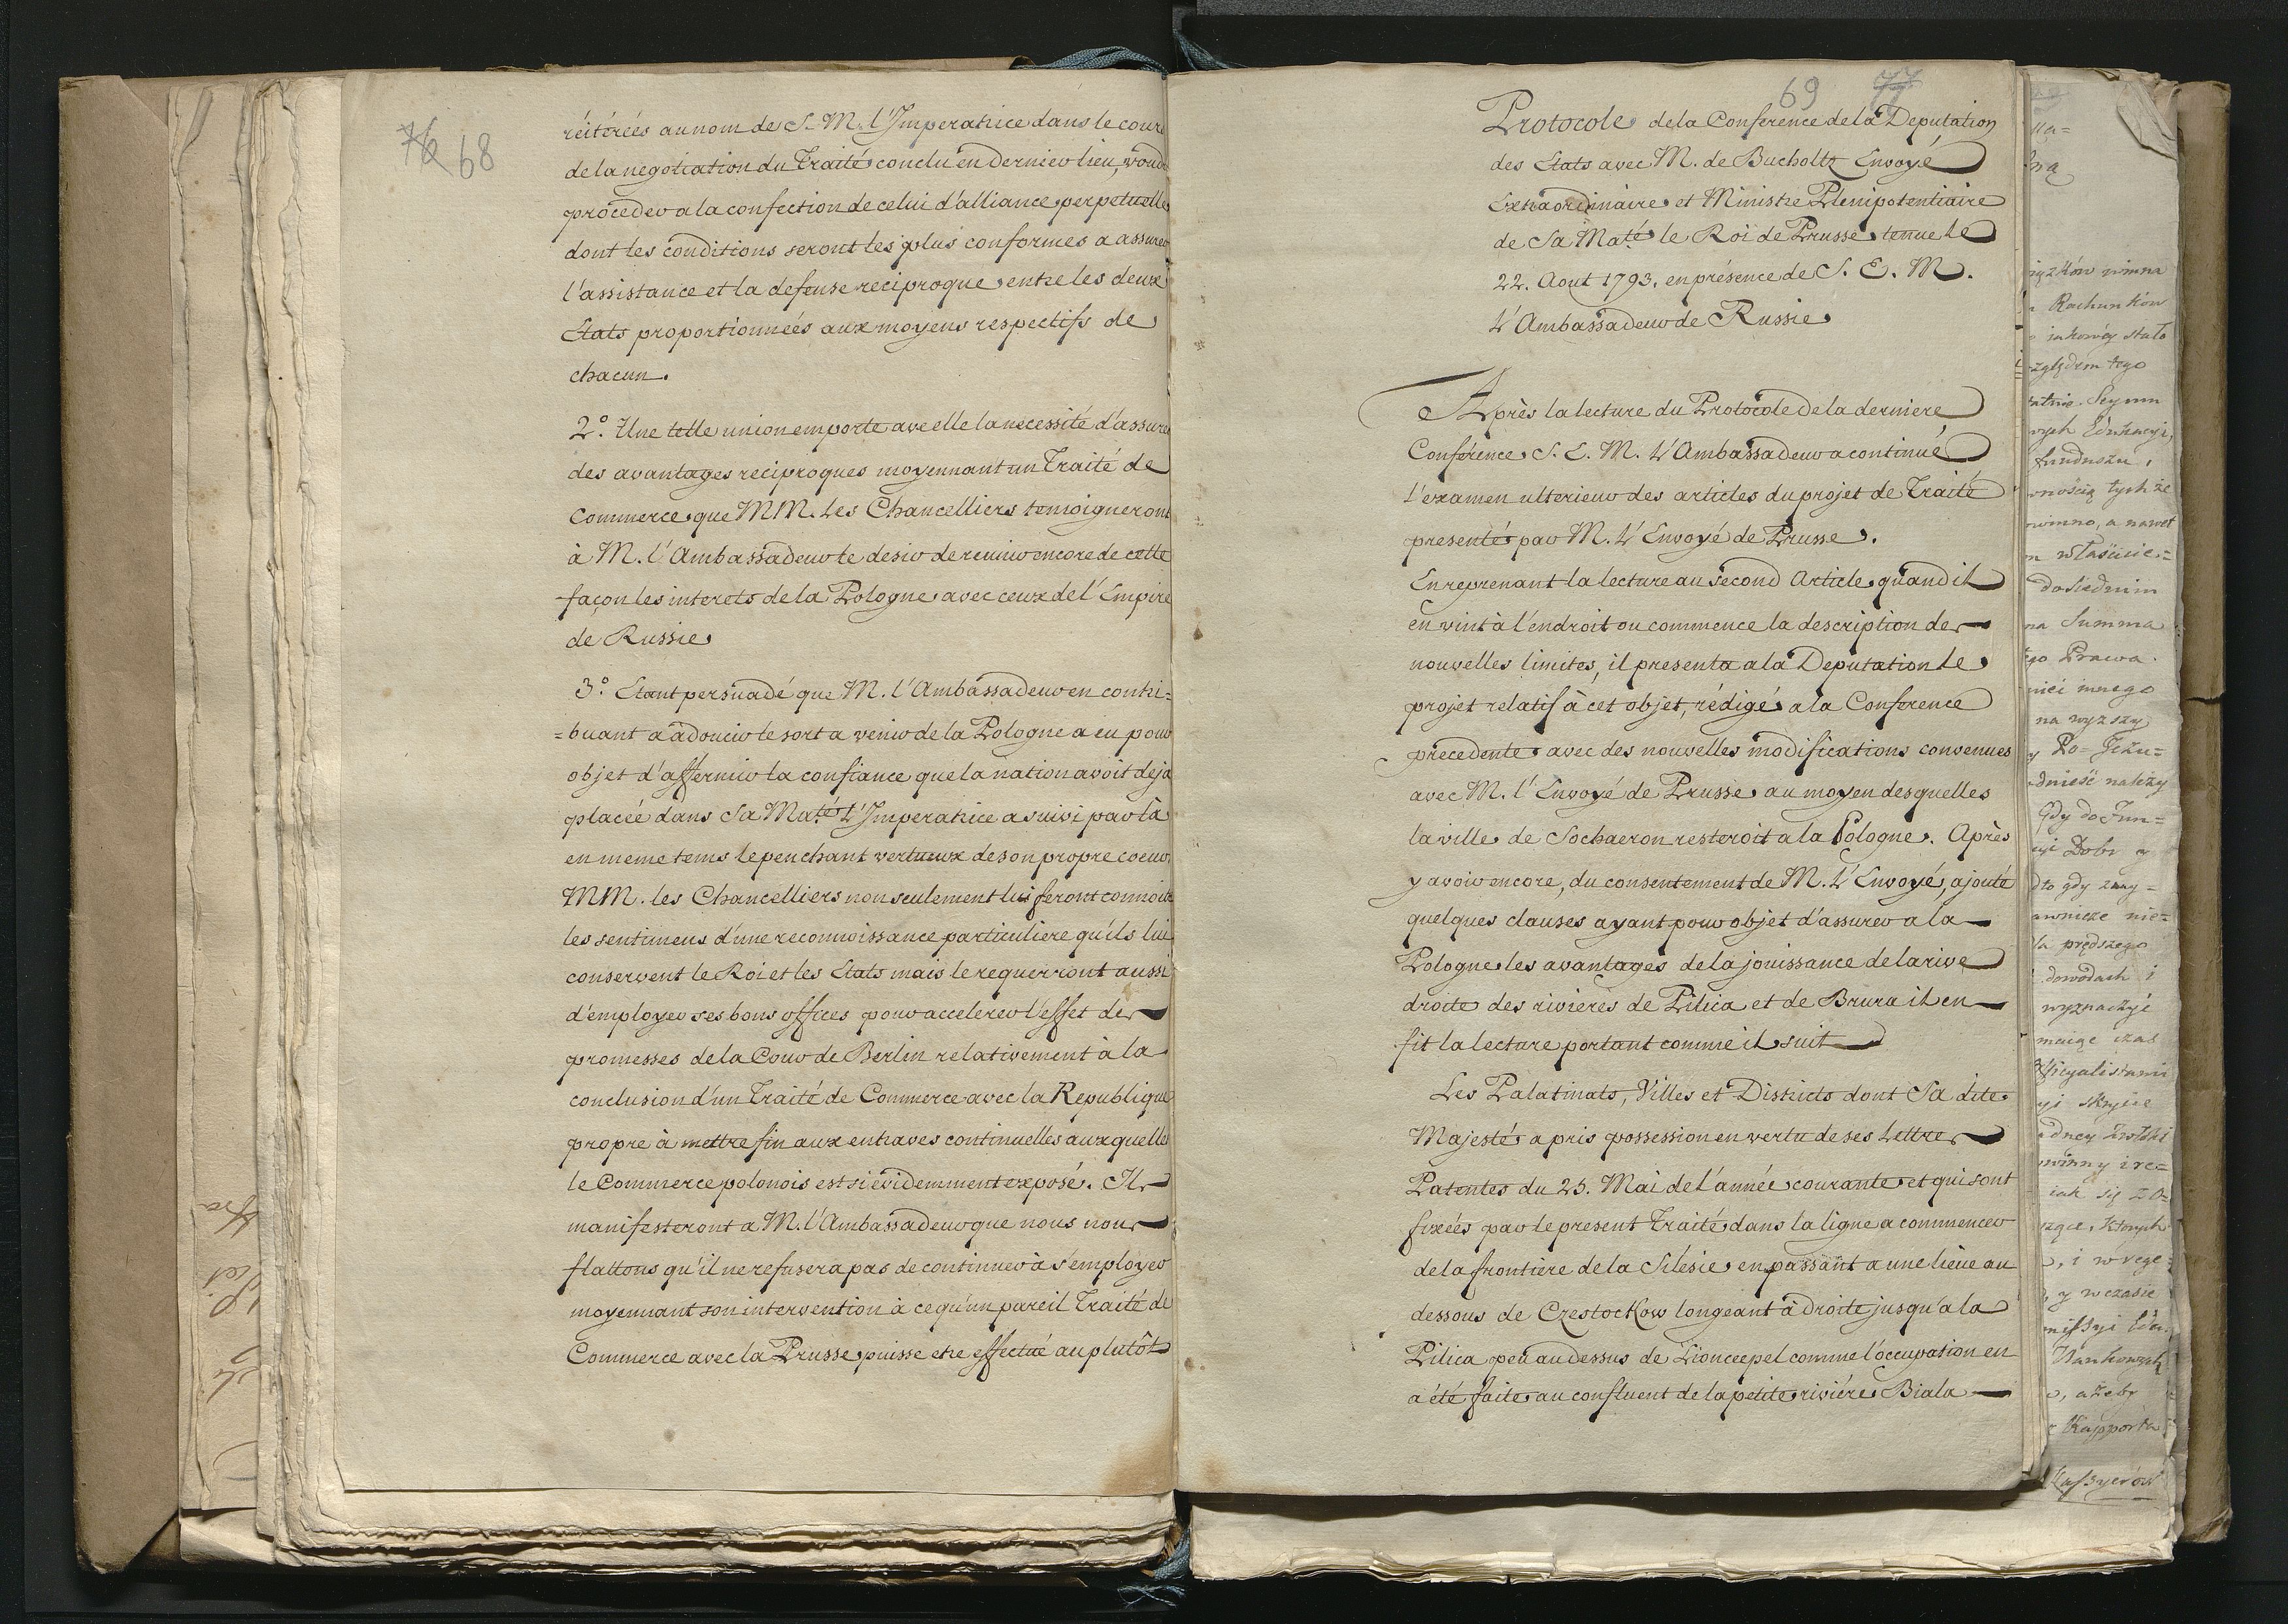 76 68
réitérées au nom de S. M. l'Imperatrice dans le cours
de la negotiation du Traité conclu en dernier lieu, voudr
proceder a la confection de celui d'alliance perpetuelle
dont les conditions seront les plus conformes a assurer
l'assistance et la defense reciproque entre les deux
Etats proportionneés aux moyens respectifs de
chacun.
2.° Une telle union emporte avec elle la necessité d'assurer
des avantages reciproques moyennant un Traité de
Commerce que MM. les Chancelliers temoigneront
à M. l'Ambassadeur le desir de reunir encore de cette
façon les interets de la Pologne avec ceux de l'Empire
de Russie
3.° Etant persuadé que M. l'Ambassadeur en contri=
=buant a adoucir le sort a venir de la Pologne a eu pour
objet d'affermir la confiance que la nation avoit deja
placée dans Sa Maté l'Imperatrice a suivi par là
en meme tems le penchant vertueux de son propre coeur,
MM. les Chancelliers non seulement lui feront connoitre
les sentimens d'une reconnoissance particuliere qu'ils lui
conservent le Roi et les Etats mais le requerront aussi
d'employer ses bons offices pour accelerer l'effet des
promesses de la Cour de Berlin relativement à la
conclusion d'un Traité de Commerce avec la Republique
propre à mettre fin aux entraves continuelles auxquelles
le Commerce polonois est si evidemment exposé. Ils
manifesteront a M. l'Ambassadeur que nous nous
flattons qu'il ne refusera pas de continuer à s'employer
moyennant son intervention à ce qu'un pareil Traité de
Commerce avec la Prusse puisse etre effectué au plutôt
69 77
Protocole de la Conference de la Deputation
des Etats avec M. de Bucholtz Envoyé
Extraordinaire et Ministre Plenipotentiaire
de Sa Maté le Roi de Prusse tenue le
22. Aout 1793. en présence de S. E. M.
L'Ambassadeur de Russie
Après la lecture du Protocole de la derniere
Conférence S. E. M. L'Ambassadeur a continué
l'examen ulterieur des articles du projet de Traité
presenté par M. L'Envoyé de Prusse.
En reprenant la lecture au second Article quand il
en vint à l'endroit ou commence la description des
nouvelles limites, il presenta a la Deputation le
projet relatif à cet objet, rédigé a la Conference
precedente avec des nouvelles modifications convenues
avec M. l'Envoyé de Prusse au moyen desquelles
la ville de Sochaeron resteroit a la Pologne. Après
y avoir encore, du consentement de M. L'Envoyé, ajouté
quelques clauses ayant pour objet d'assurer a la
Pologne les avantages de la jouissance de la rive
droite des rivieres de Pilica et de Brura il en
fit la lecture portant comme il suit
Les Palatinats, Villes et Districts dont Sa dite
Majesté a pris possession en vertu de ses Lettres
Patentes du 25. Mai de l'année courante et qui sont
fixées par le present Traité dans la ligne a commencer
de la frontiere de la Silesie en passant a une lieüe au
dessous de Czestockow longeant à droite jusqu'a la
Pilica peu au dessus de Lionceepel comme l'occupation en
a été faite au confluent de la petite riviére Biala
Rachunków
stało
tego
Seymu
funduszu,
tych że
a nawet
Summa
Prawa
innego
na wyższy
należy
Gdy do Fun=
Dobr
gdy
prędszego
dowodach i
czas
się
i w
y w czasie
ażeby
Rapporta